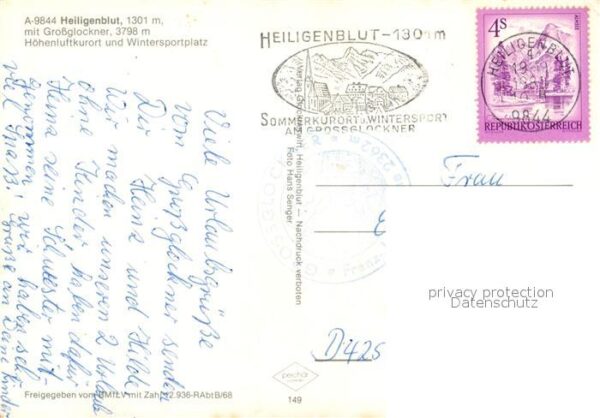 A-9844 Heiligenblut, 1301 m,
mit Großglockner, 3798 m
Höhenluftkurort und Wintersportplatz
Viele Urlaubsgrüße
vom Großglockner senden
Dir Heinz und Hilde
Wir machen unseren 2. Urlaub
ohne Kinder haben dafür
Heinz seine Schwester mit-
genommen, wir haben sehr
viel Spass. Grüße an Deine Kinder
Freigegeben vom BMfLV mit Zahl 12.936-RAbtB/68
HEILIGENBLUT - 1301 m
SOMMERKURORT U. WINTERSPORT
AM GROSSGLOCKNER
HEILIGENBLUT
9844
4S
REPUBLIK ÖSTERREICH
Heiligenblut – Nachdruck verboten
Foto Hans Senger
GROSSGLOCKNER
2362 m
Franz-
Frau
E
D 425
privacy protection
Datenschutz
149